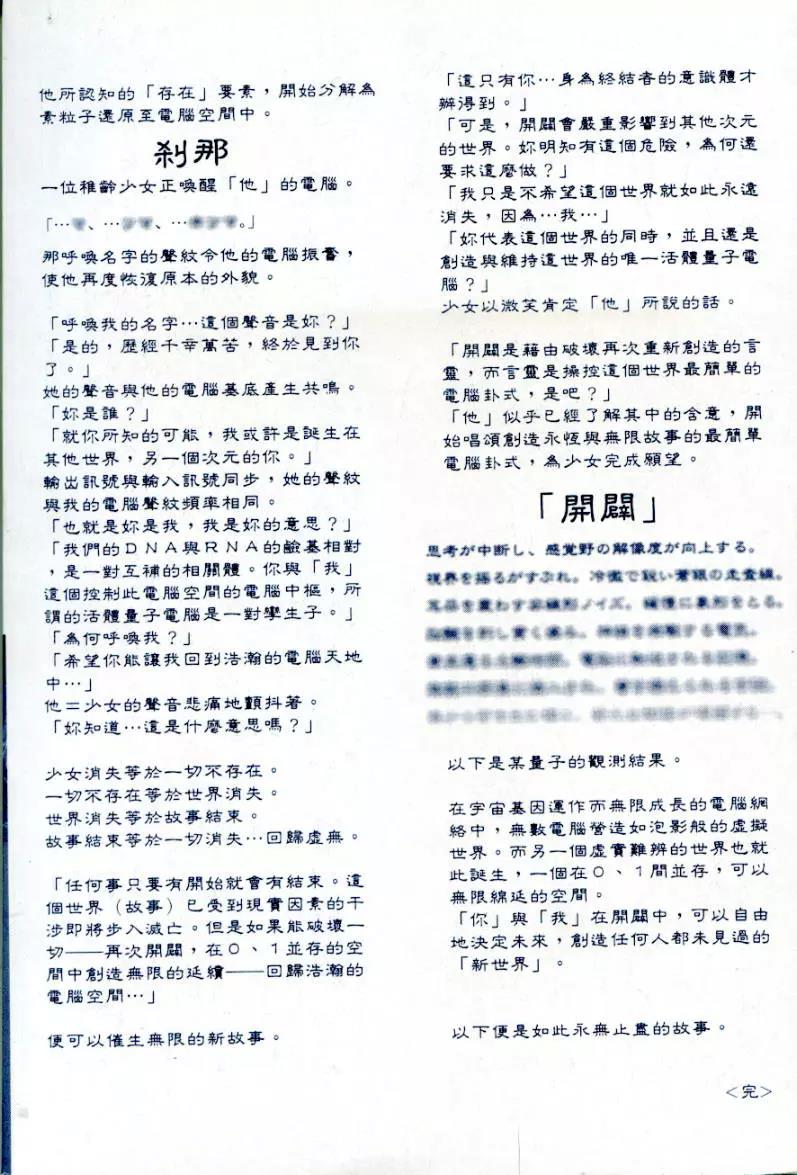 他所認知的「存在」要素，開始分解為
素粒子還原至電腦空間中。
剎那
一位稚齡少女正喚醒「他」的電腦。
「…、…、…。」
那呼喚名字的聲紋令他的電腦振奮，
使他再度恢復原本的外貌。
「呼喚我的名字…這個聲音是妳？」
「是的，歷經千辛萬苦，終於見到你
了。」
她的聲音與他的電腦基底產生共鳴。
「妳是誰？」
「就你所知的可能，我或許是誕生在
其他世界，另一個次元的你。」
輸出訊號與輸入訊號同步，她的聲紋
與我的電腦聲紋頻率相同。
「也就是妳是我，我是妳的意思？」
「我們的ＤＮＡ與ＲＮＡ的鹼基相對
，是一對互補的相關體。你與「我」
這個控制此電腦空間的電腦中樞，所
謂的活體量子電腦是一對孿生子。」
「為何呼喚我？」
「希望你能讓我回到浩瀚的電腦天地
中…」
他＝少女的聲音悲痛地顫抖著。
「妳知道…這是什麼意思嗎？」
少女消失等於一切不存在。
一切不存在等於世界消失。
世界消失等於故事結束。
故事結束等於一切消失…回歸虛無。
「任何事只要有開始就會有結束。這
個世界（故事）已受到現實因素的干
涉即將步入滅亡。但是如果能破壞一
切——再次開闢，在０、１並存的空
間中創造無限的延續——回歸浩瀚的
電腦空間…」
便可以催生無限的新故事。
「這只有你…身為終結者的意識體才
辦得到。」
「可是，開闢會嚴重影響到其他次元
的世界。妳明知有這個危險，為何還
要求這麼做？」
「我只是不希望這個世界就如此永遠
消失，因為…我…」
「妳代表這個世界的同時，並且還是
創造與維持這世界的唯一活體量子電
腦？」
少女以微笑肯定「他」所說的話。
「開闢是藉由破壞再次重新創造的言
靈，而言靈是操控這個世界最簡單的
電腦卦式，是吧？」
「他」似乎已經了解其中的含意，開
始唱頌創造永恆與無限故事的最簡單
電腦卦式，為少女完成願望。
「開闢」
思考が中断し、感覚野の解像度が向上する。
視界を揺るがすぶれ。冷徹で鋭い蒼銀の走査線。
以下是某量子的觀測結果。
在宇宙基因運作而無限成長的電腦網
絡中，無數電腦營造如泡影般的虛擬
世界。而另一個虛實難辨的世界也就
此誕生，一個在０、１間並存，可以
無限綿延的空間。
「你」與「我」在開闢中，可以自由
地決定未來，創造任何人都未見過的
「新世界」。
以下便是如此永無止盡的故事。
＜完＞